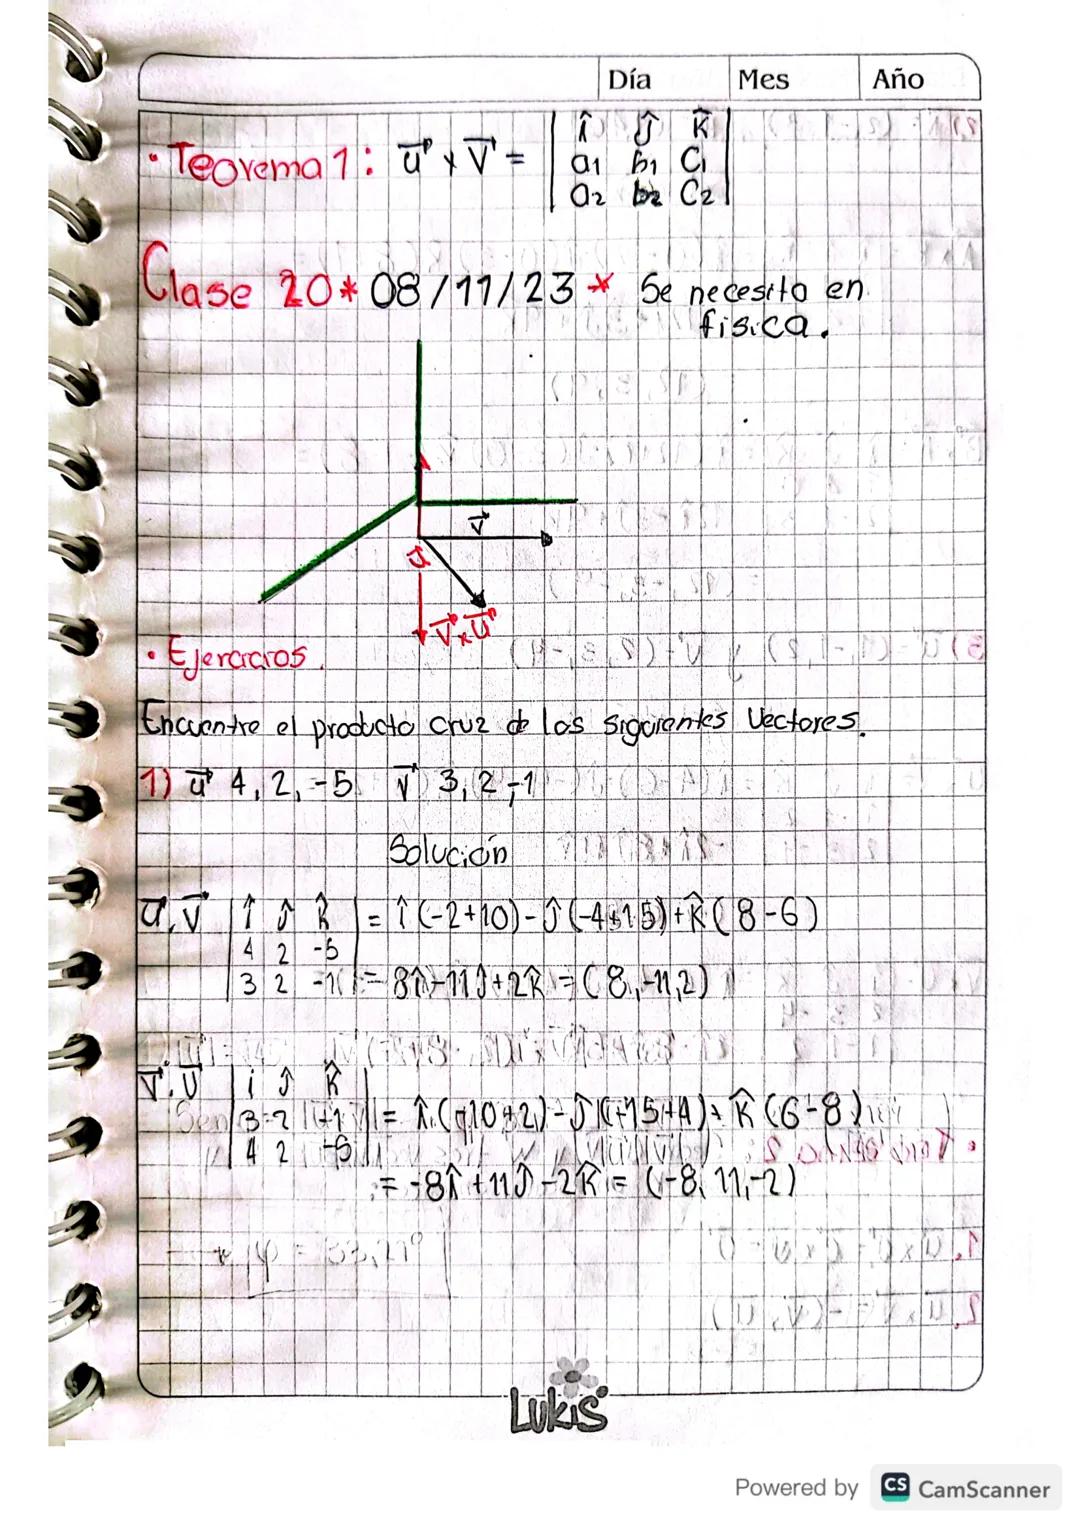 Día Mes Año
• Teorema 1: u⃗ x v⃗ = | î ĵ k̂ |
| a1 b1 c1 |
| a2 b2 c2 |
Clase 20 * 08/11/23 * Se necesita en
física.
v⃗
u⃗
v⃗ x u⃗
• Ejercicios.
Encuentre el producto cruz de los siguientes Vectores.
1) u⃗ 4, 2, -5 v⃗ 3, 2, -1
Solución
u⃗.v⃗ | î ĵ k̂ | = î (-2+10) - ĵ (-4+15) + k̂ (8-6)
| 4 2 -5 |
| 3 2 -1 | = 8î - 11ĵ + 2k̂ = (8, -11, 2)
v⃗.u⃗ | i ĵ k̂ |
| 3 2 -1 | = î (-10+2) - ĵ (-15+4) + k̂ (6-8)
| 4 2 -5 |
= -8î + 11ĵ - 2k̂ = (-8, 11, -2)
LUKIS
Powered by CS CamScanner